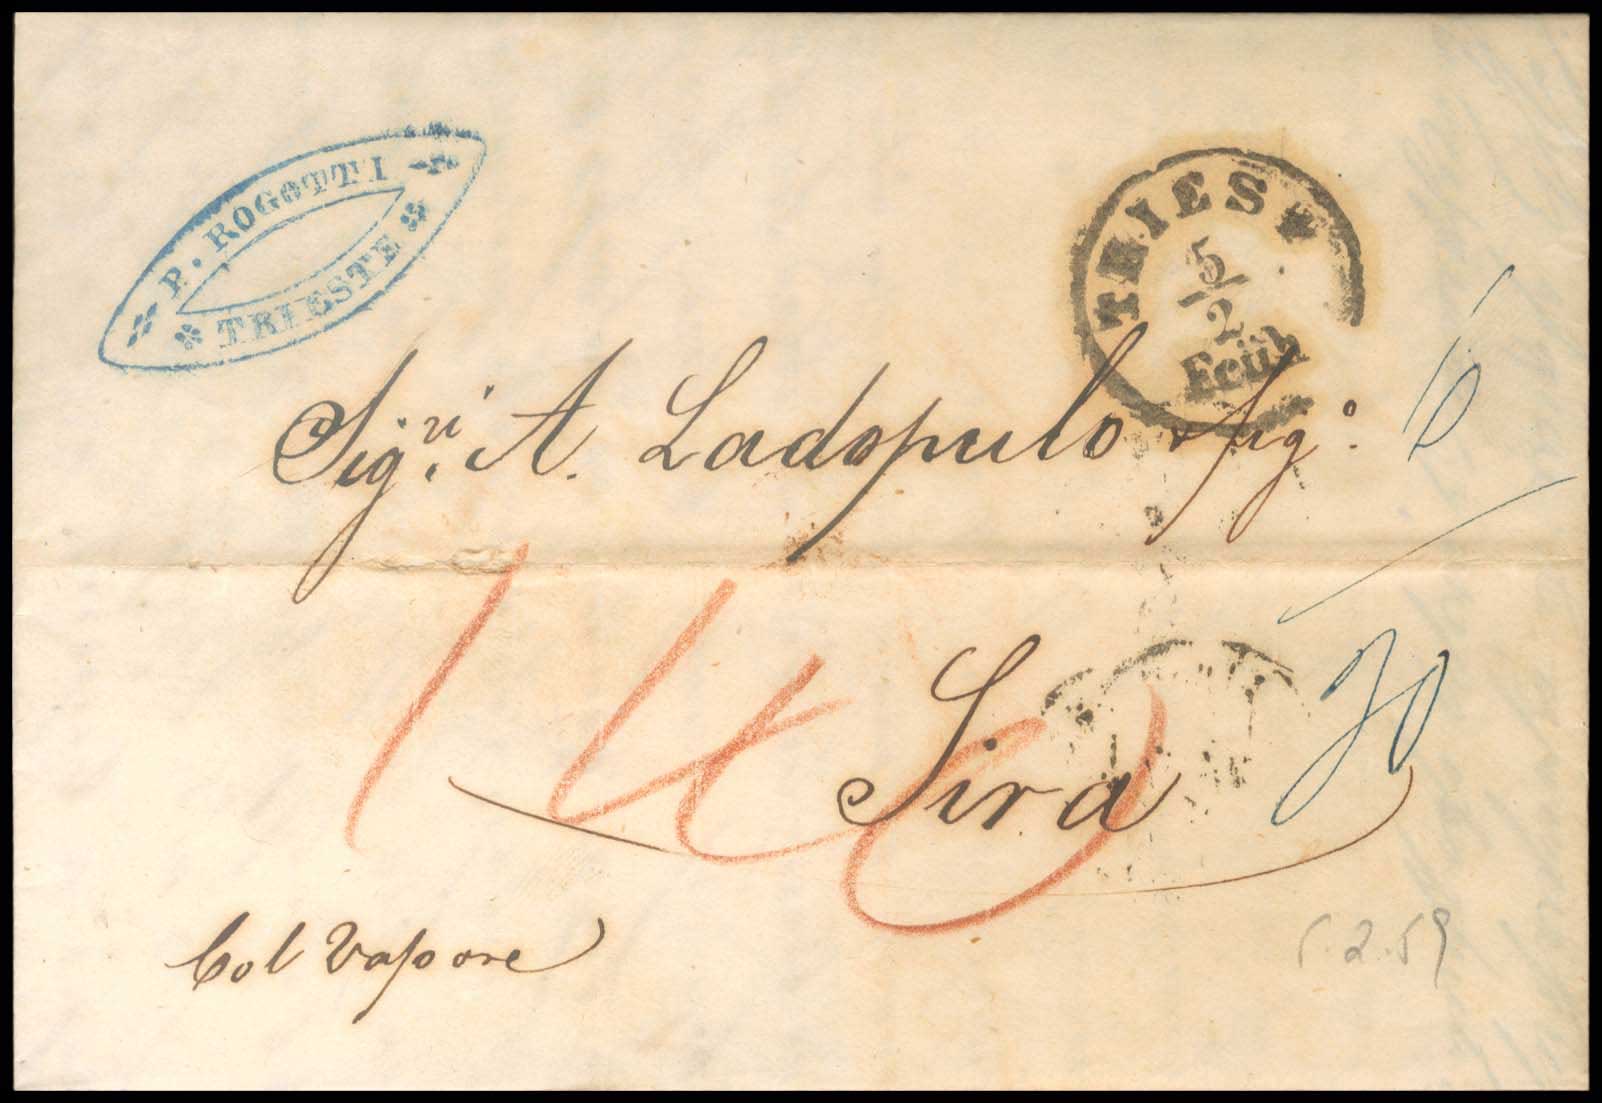 P. ROGOTTI
TRIESTE
TRIEST
5/2
Früh
Sig.ri A. Ladopulo & fig.o
Sira
Col Vapore
5.2.59